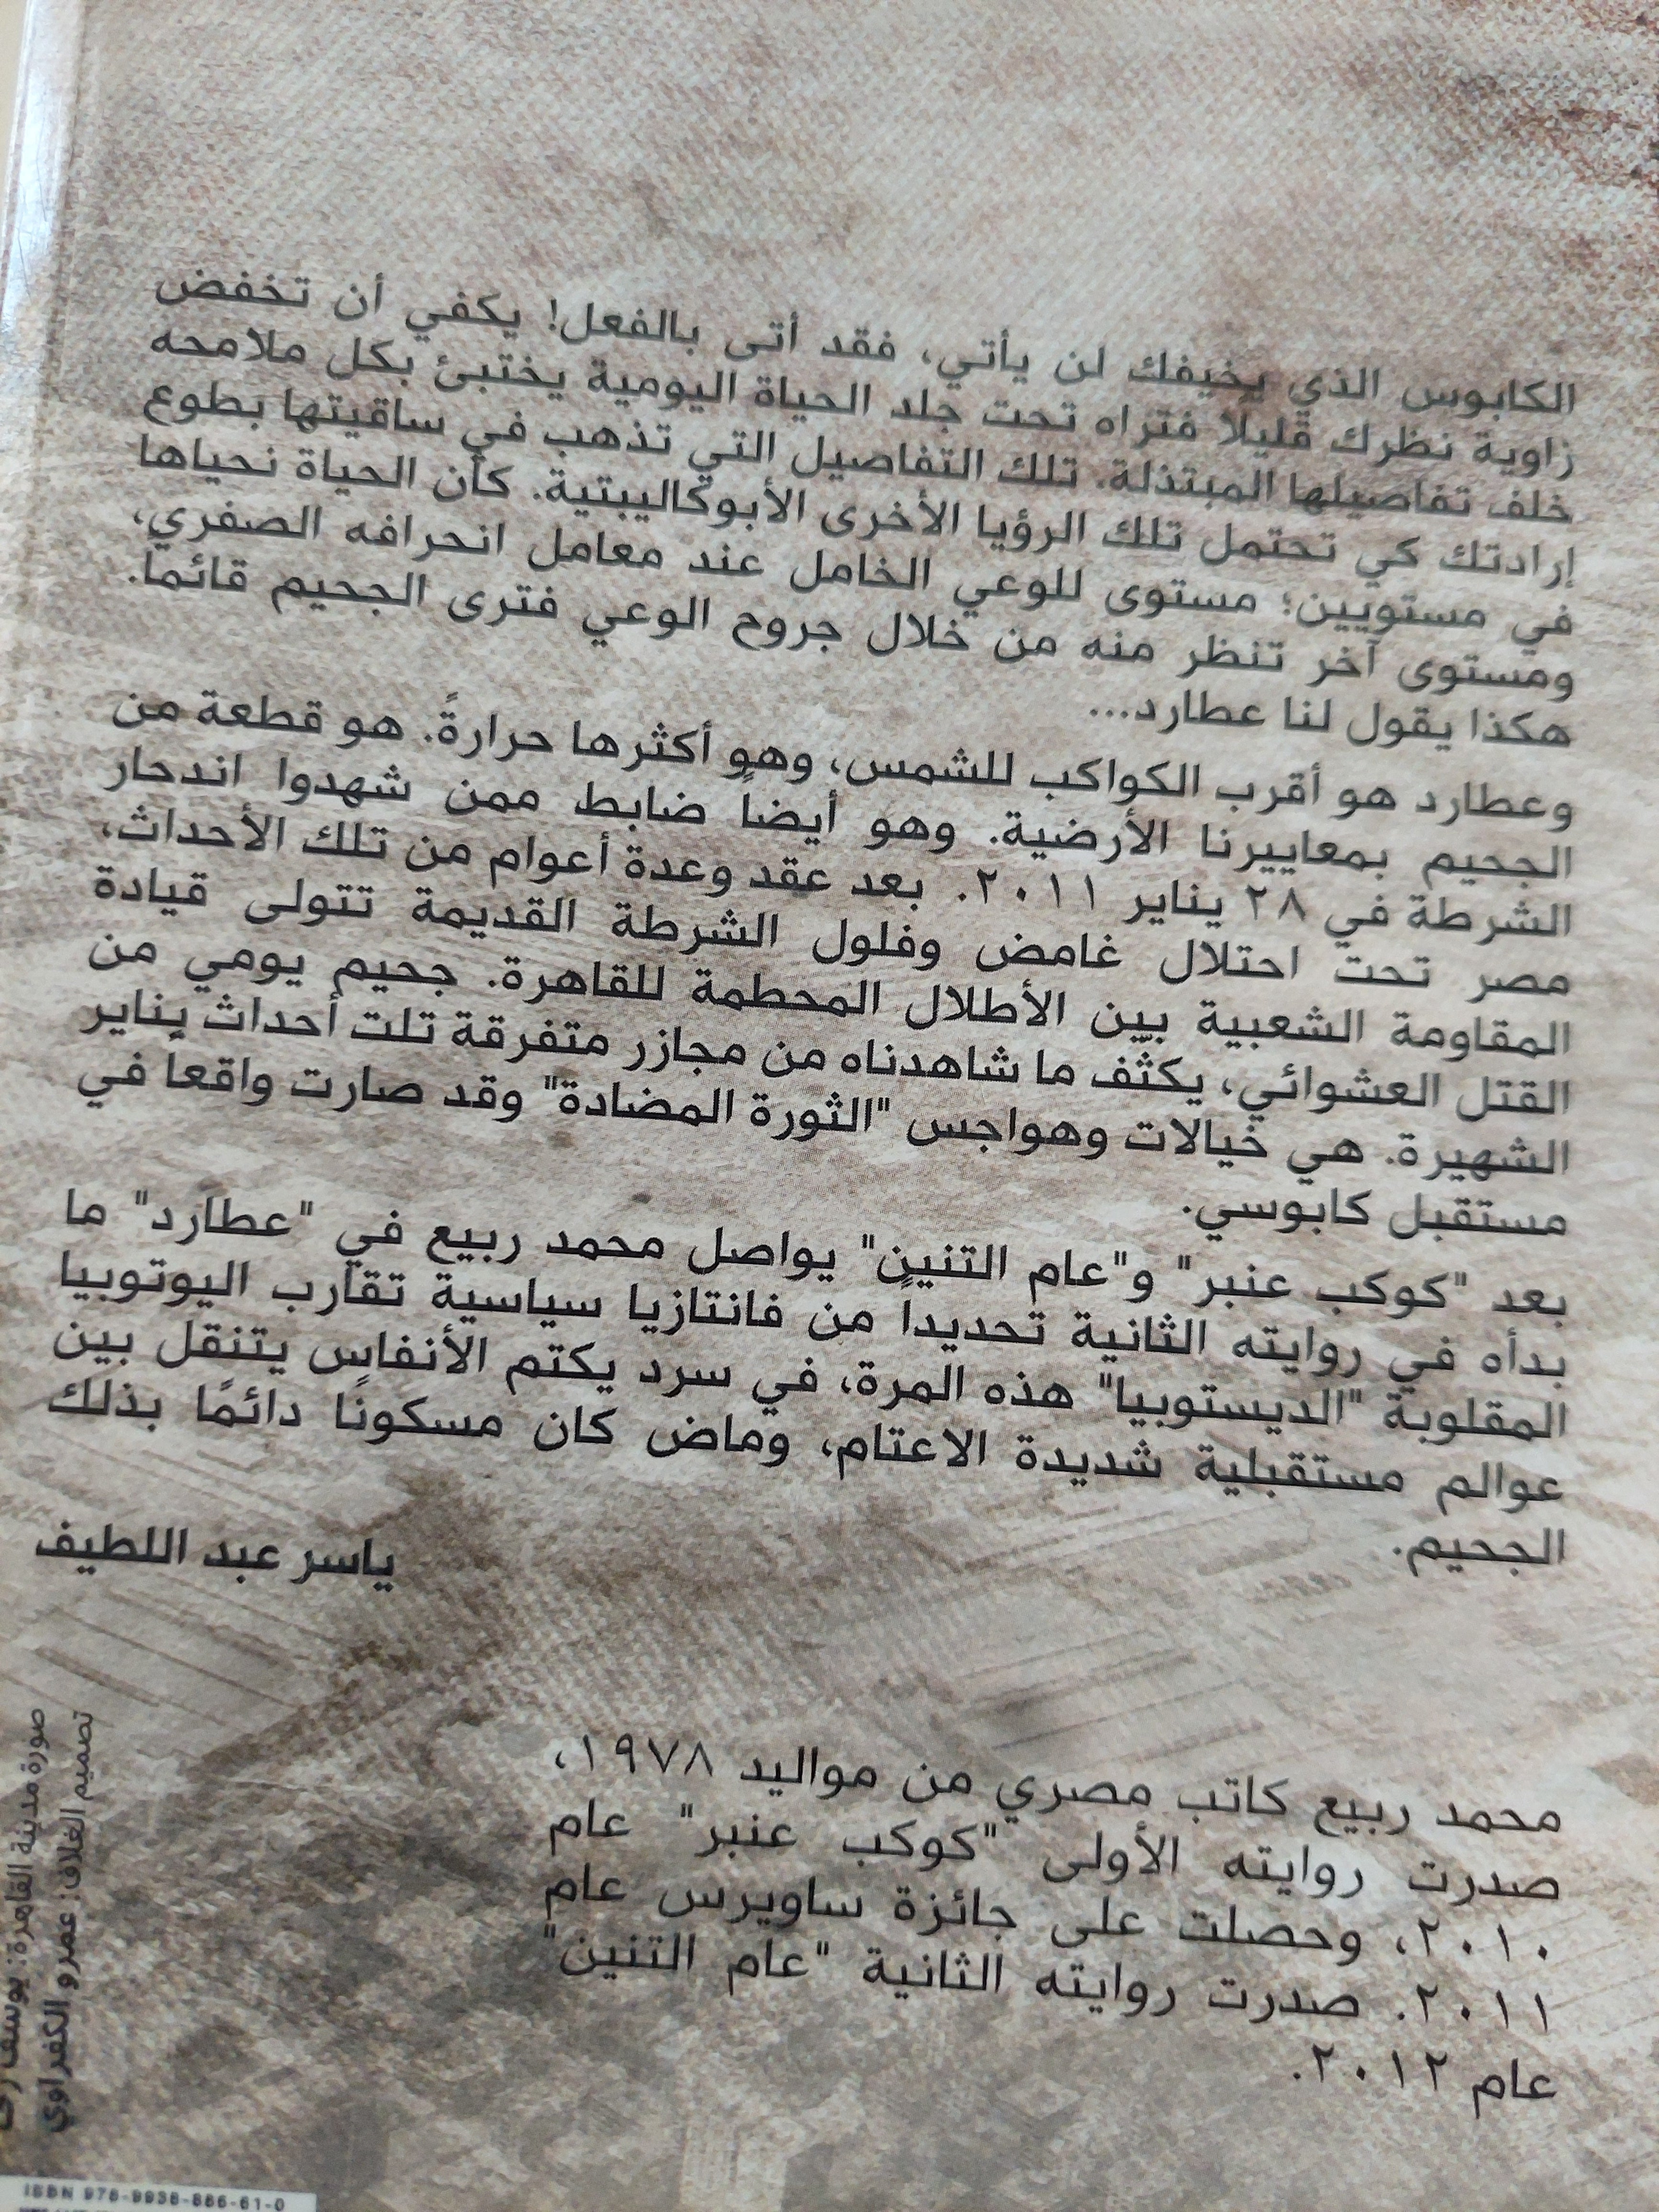 الكابوس الذي يخيفك لن يأتي، فقد أتى بالفعل! يكفي أن تخفض
زاوية نظرك قليلًا فتراه تحت جلد الحياة اليومية يختبئ بكل ملامحه
خلف تفاصيلها المبتذلة. تلك التفاصيل التي تذهب في ساقيتها بطوع
إرادتك كي تحتمل تلك الرؤيا الأخرى الأبوكاليبتية. كأن الحياة نحياها
في مستويين؛ مستوى للوعي الخامل عند معامل انحرافه الصفري،
ومستوى آخر تنظر منه من خلال جروح الوعي فترى الجحيم قائماً.
هكذا يقول لنا عطارد...
وعطارد هو أقرب الكواكب للشمس، وهو أكثرها حرارةً. هو قطعة من
الجحيم بمعاييرنا الأرضية. وهو أيضاً ضابط ممن شهدوا اندحار
الشرطة في ٢٨ يناير ٢٠١١. بعد عقد وعدة أعوام من تلك الأحداث،
مصر تحت احتلال غامض وفلول الشرطة القديمة تتولى قيادة
المقاومة الشعبية بين الأطلال المحطمة للقاهرة. جحيم يومي من
القتل العشوائي، يكثّف ما شاهدناه من مجازر متفرقة تلت أحداث يناير
الشهيرة. هي خيالات وهواجس "الثورة المضادة" وقد صارت واقعاً في
مستقبل كابوسي.
بعد "كوكب عنبر" و"عام التنين" يواصل محمد ربيع في "عطارد" ما
بدأه في روايته الثانية تحديداً من فانتازيا سياسية تقارب اليوتوبيا
المقلوبة "الديستوبيا" هذه المرة، في سرد يكتم الأنفاس يتنقل بين
عوالم مستقبلية شديدة الاعتام، وماض كان مسكونًا دائمًا بذلك
الجحيم.
ياسر عبد اللطيف
محمد ربيع كاتب مصري من مواليد ١٩٧٨،
صدرت روايته الأولى "كوكب عنبر" عام
٢٠١٠، وحصلت على جائزة ساويرس عام
٢٠١١. صدرت روايته الثانية "عام التنين"
عام ٢٠١٢.
صورة مدينة القاهرة: يوسف
تصميم الغلاف: عمرو الكفراوي
ISBN 978-9938-886-61-0